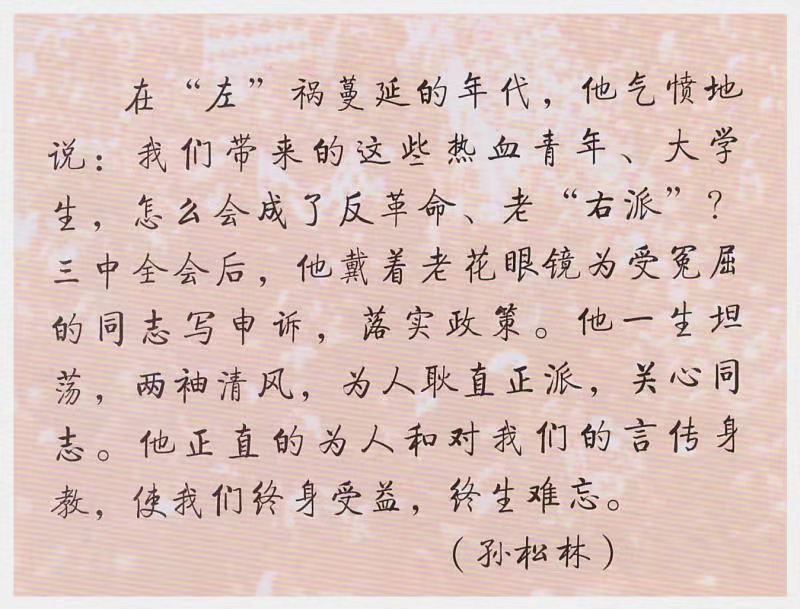 在“左”祸蔓延的年代，他气愤地
说：我们带来的这些热血青年、大学
生，怎么会成了反革命、老“右派”？
三中全会后，他戴着老花眼镜为受冤屈
的同志写申诉，落实政策。他一生坦
荡，两袖清风，为人耿直正派，关心同
志。他正直的为人和对我们的言传身
教，使我们终身受益，终生难忘。
（孙松林）